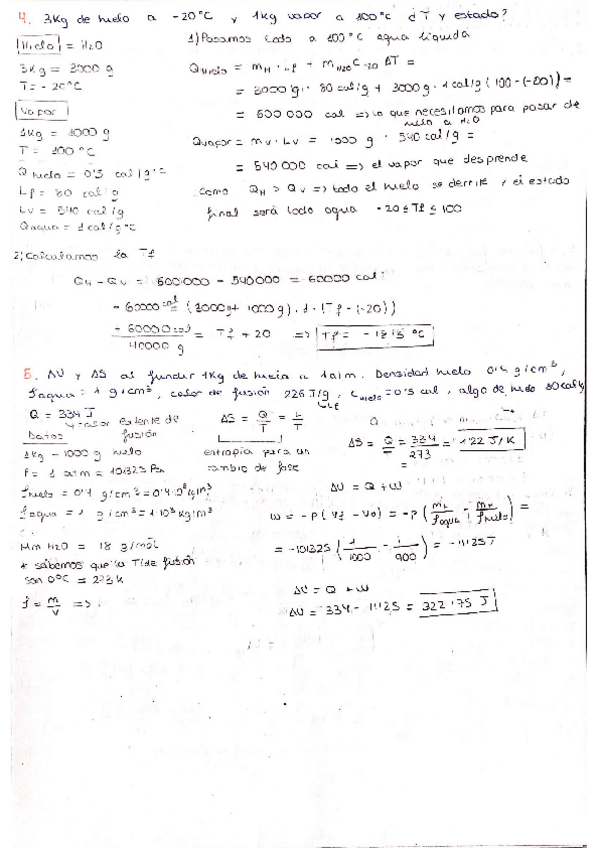 4. 3Kg de hielo a -20°C y 1kg vapor a 100°C ¿T y estado?
Hielo = H2O
3Kg = 3000 g
T = -20°C
Vapor
1kg = 1000 g
T = 100°C
Q hielo = 0'5 cal/g·°C
Lf = 80 cal/g
Lv = 540 cal/g
Qagua = 1 cal/g°C
1) Pasamos todo a 100°C agua líquida
Qhielo = mH · Lf + mH2O C-20 ΔT =
= 3000 g · 80 cal/g + 3000 g · 1 cal/g (100 - (-20)) =
= 600 000 cal => lo que necesitamos para pasar de
hielo a H2O
Qvapor = mv · Lv = 1000 g · 540 cal/g =
= 540 000 cal => el vapor que desprende
Como QH > QV => todo el hielo se derrite y el estado
final será todo agua -20 ≤ Tf ≤ 100
2) Calculamos la Tf
QH - QV = 600 000 - 540 000 = 60000 cal
- 60000 cal = (3000g + 1000 g) · 1 · (Tf - (-20))
- 60000 cal / 40000 g = Tf + 20 => Tf = - 18'5 °C
5. ΔU y ΔS al fundir 1Kg de hielo a 1 atm. Densidad hielo 0'9 g/cm³,
ρagua = 1 g/cm³, calor de fusión 226 J/g, Chielo = 0'5 cal, algo de hielo 80 cal/g
Lf
Q = 334 J
calor latente de
fusión
Datos
1Kg - 1000 g hielo
P = 1 atm = 101325 Pa
ρhielo = 0'9 g/cm³ = 0'9·10³ kg/m³
ρagua = 1 g/cm³ = 1·10³ kg/m³
Mm H2O = 18 g/mol
* sabemos que la T de fusión
son 0°C = 273K
ρ = m/V =>
ΔS = Q/T = L/T
entropía para un
cambio de fase
ΔS = Q/T = 334/273 = 1'22 J/K
ΔU = Q + W
W = -P (Vf - V0) = -P (mL/ρagua - mH/ρhielo) =
= -101325 (1/1000 - 1/900) = -11'25 J
ΔU = Q + W
ΔU = 334 - 11'25 = 322'75 J